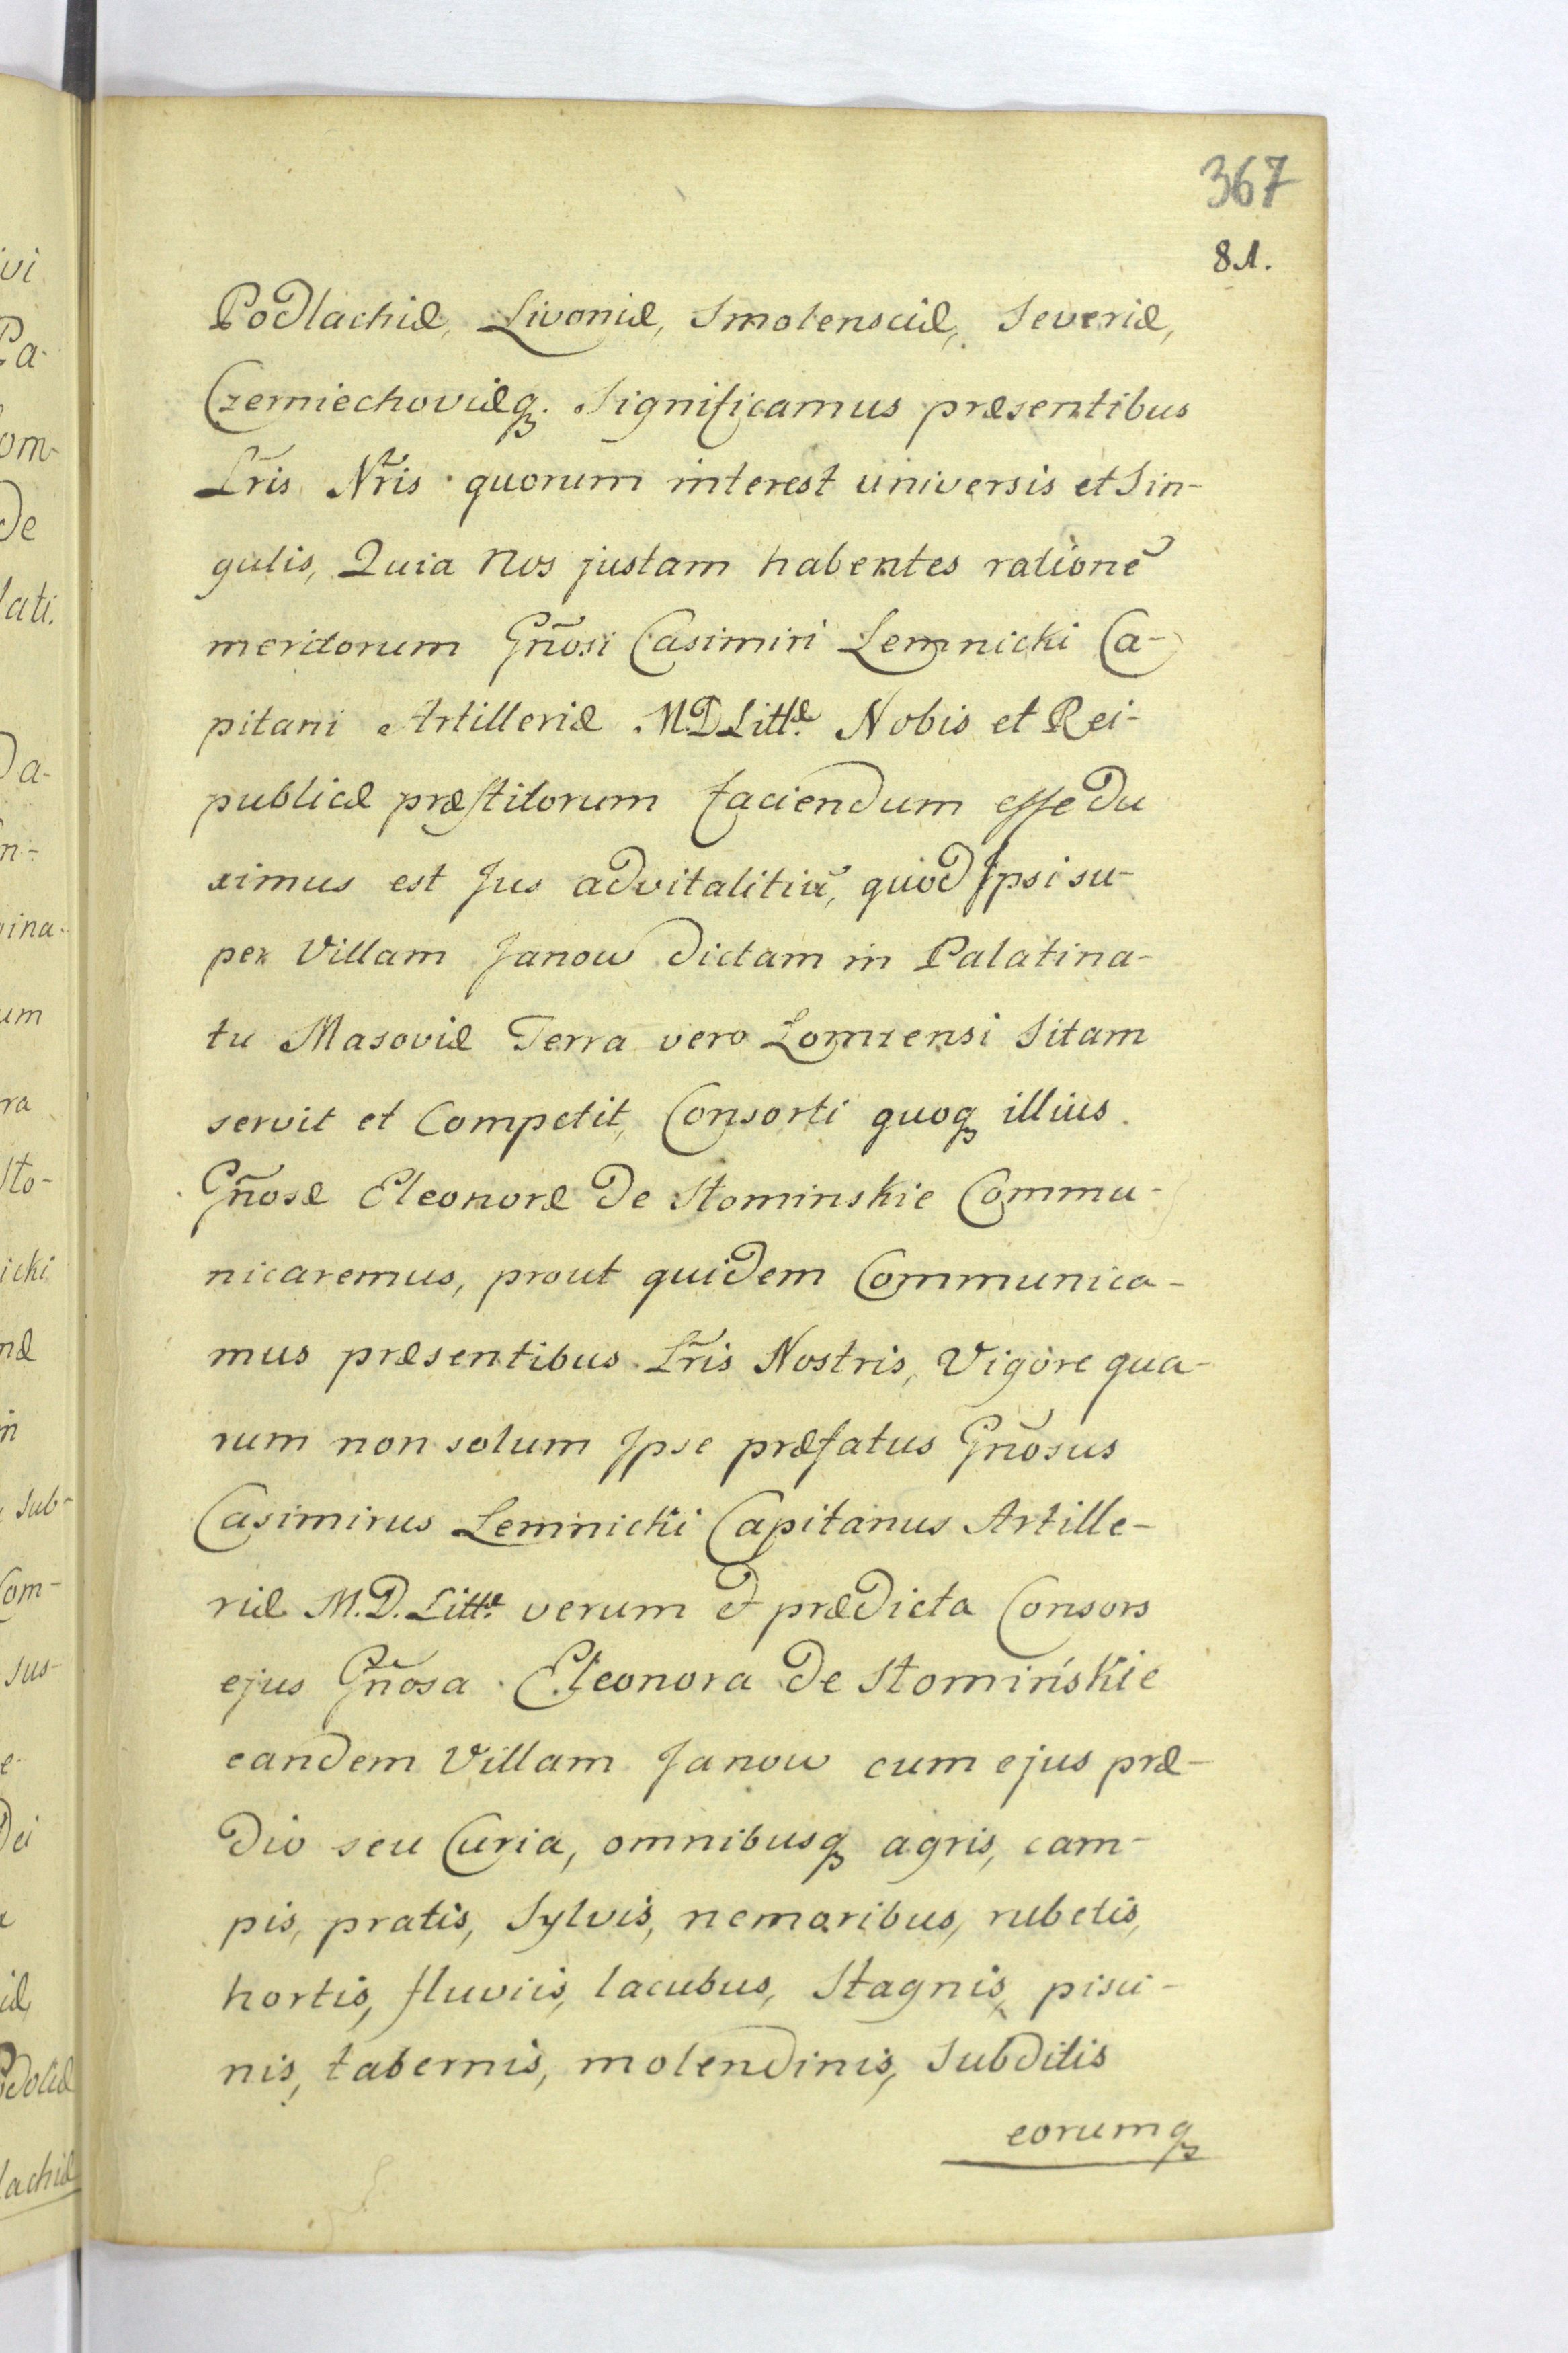 367
81.
Podlachiæ, Livoniæ, Smolensciæ, Severiæ,
Czerniechoviæq. Significamus præsentibus
Lr̃is Nr̃is quorum interest universis et Sin-
gulis, Quia Nos justam habentes rationẽ
meritorum Gñosi Casimiri Lemnicki Ca-
pitani Artilleriæ M.D. Littæ. Nobis et Rei-
publicæ præstitorum faciendum esse du
ximus est Jus advitalitiũ, quod Ipsi su-
per Villam Janow dictam in Palatina-
tu Masoviæ Terra vero Lomzensi Sitam
servit et Competit, Consorti quoq illius
Gñosæ Eleonoræ de Stominskie Commu-
nicaremus, prout quidem Communica-
mus præsentibus Lr̃is Nostris, Vigore qua-
rum non solum Ipse præfatus Gñosus
Casimirus Lemnicki Capitanus Artille-
riæ M.D. Littæ. verum et prædicta Consors
ejus Gñosa Eleonora de Stomińskie
eandem Villam Janow cum ejus præ-
dio seu Curia, omnibusq agris, cam-
pis, pratis, Sylvis, nemoribus, rubetis,
hortis, fluviis, lacubus, Stagnis, pisci-
nis, tabernis, molendinis, Subditis
eorumq